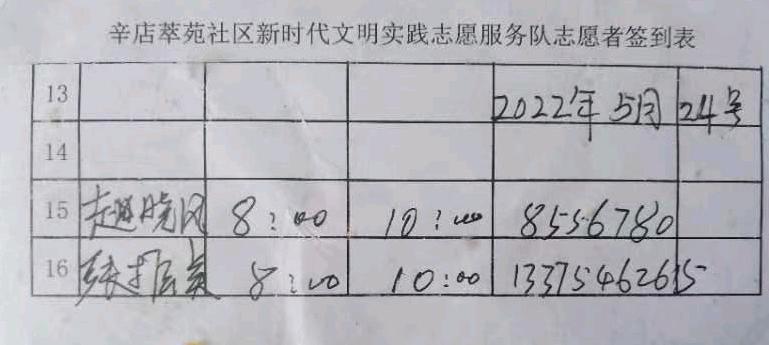 辛店萃苑社区新时代文明实践志愿服务队志愿者签到表
13 2022年 5月 24号
14
15 赵晓风 8:00 10:00 8556780
16 8:00 10:00 13375462615